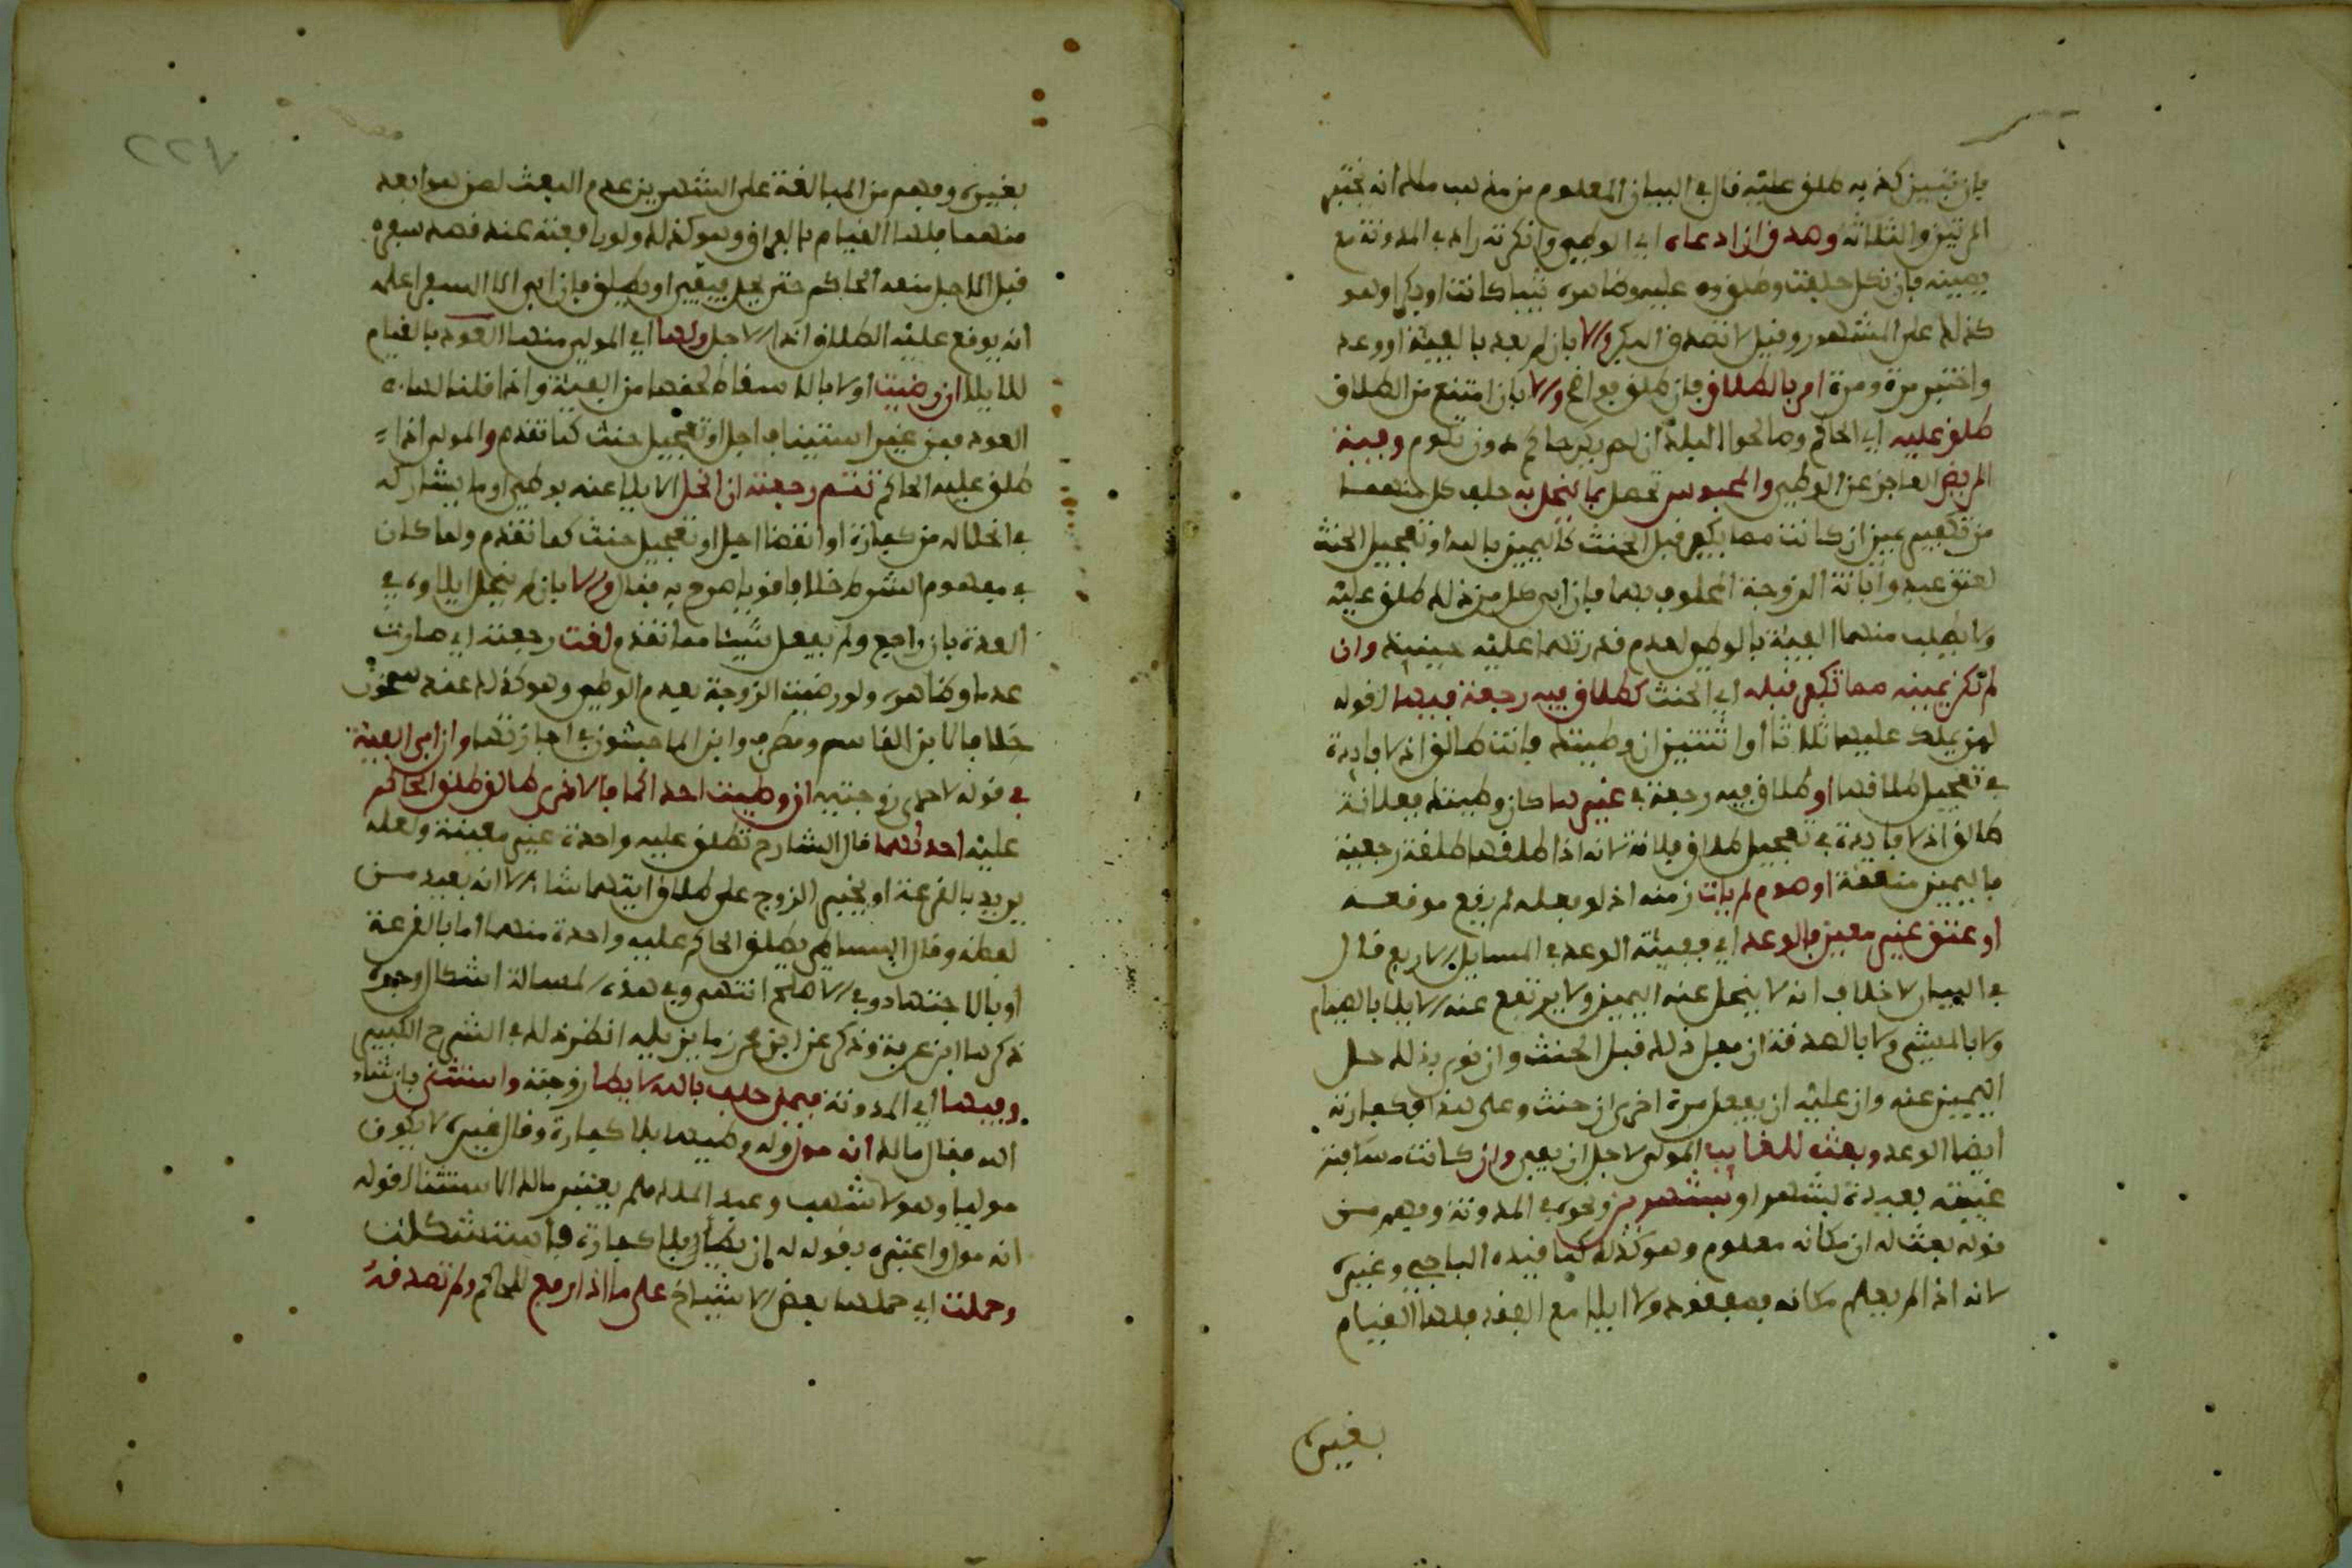 فان تبين كذبه طلق عليه قال في البيان المعلوم من مذهب مالك انه يختبر
المرتين والثلاثة وصدق ان ادعاه اي الوطء وانكرته زاد في المدونة مع
يمينه فان نكل حلفت وطلق عليه وظاهره ثيبا كانت او بكرا وهو
كذلك على المشهور وقيل لا تصدق البكر والا بان لم يعد بالفيئة او وعد
واختبر مرة ومرة امر بالطلاق فان طلق فواضح والا بان امتنع من الطلاق
طلق عليه اي الحاكم وصالحوا البلد ان لم يكن حاكم دون تلوم وفيئة
المريض العاجز عن الوطء والمحبوس تحصل بما ينحل به حلف كل منهما
من تكفير يمين ان كانت مما يكفر قبل الحنث كاليمين بالله او تعجيل الحنث
لعتق عبد وابانة الزوجة المحلوف بهما فان ابى كل من ذلك طلق عليه
ولا يطلب منهما الفيئة بالوطء لعدم قدرتهما عليه حينئذ وان
لم تكن يمينه مما تكفر قبله اي الحنث كطلاق فيه رجعة فيها لقوله
لمن يملك عليها ثلاثا او اثنتين ان وطيتك فانت طالق اذ لا فايدة
في تعجيل طلاقها او طلاق فيه رجعة في غيرها كان وطيتك ففلانة
طالق اذ لا فايدة في تعجيل طلاق فلانة لانه اذا طلقها طلقة رجعية
فاليمين منعقدة او صوم لم يات زمنه اذ لو فعله لم يقع موقعه
او عتق غير معين فالوعد اي ففيئته الوعد في المسايل الاربع قال
في البيان لا خلاف انه لا ينحل عنه اليمين ولا يرتفع عنه الايلا بالصيام
ولا بالمشي ولا بالصدقة ان فعل ذلك قبل الحنث وان نوى بذلك حل
اليمين عنه وان عليه ان يفعل مرة اخرى ان حنث وعلى هذا فكفارته
ايضا الوعد وبعث للغايب المولي لاجل ان يفي وان كانت مسافة
غيبته بعيدة بشهر او بشهرين ونحوه في المدونة وفهم من
قوله بعث له ان مكانه معلوم وهو كذلك كما قيده الباجي وغيره
لانه اذا لم يعلم مكانه فمفقود ولا ايلا مع الفقد فلها القيام
بغيره
٢٢٧
بغيره وفهم من المبالغة على الشهرين عدم البعث لمن هو ابعد
منهما فلها القيام بالفراق وهو كذلك ولو رافعته عند قصد سفره
قبل الاجل منعه الحاكم حتى يحل فيفي او يطلق فان ابى الا السفر اعلمه
انه يوقع عليه الطلاق اذا الاجل ولها اي المولي منها العود بالقيام
للايلا ان رضيت اولا بالاسقاط لحقها من الفيئة واذا قلنا لها
العود فمن غير استيناف اجل او تعجيل حنث كما تقدم والمولي اذا
طلق عليه الحاكم تتم رجعته ان انحل الايلا عنه بوطء او ما يشاركه
في انحلاله من كفارة او انقضا اجل او تعجيل حنث كما تقدم ولما كان
في مفهوم الشرط خلافا قويا صرح به فقال والا بان لم ينحل ايلاوه في
العدة بان راجع ولم يفعل شيئا مما تقدم ولغت رجعته اي صارت
عدما وظاهره ولو رضيت الزوجة بعدم الوطء وهو كذلك عند سحنون
خلافا لابن القاسم ومطرف وابن الماجشون في اجازتها وان ابى الفيئة
في قوله لاحدى زوجتيه ان وطيت احداكما فالاخرى طالق طلق الحاكم
عليه احداهما قال الشارح تطلق عليه واحدة غير معينة ولعله
يريد بالقرعة او يخير الزوج على طلاق ايتهما شا الا انه بعيد من
لفظه وقال البساطي يطلق الحاكم عليه واحدة منهما اما بالقرعة
او بالاجتهاد وفي الاصلح انتهى وفي هذه المسالة اشكال وجوه
ذكرها ابن عرفة وذكر عن ابن محرز ما يزيله انظر ذلك في الشرح الكبير
وفيها اي المدونة فيمن حلف بالله لا يطا زوجته واستثنى بان شاء
الله فقال مالك انه مول وله وطيها بلا كفارة وقال غيره لا يكون
موليا وهو لاشهب وعبد الملك فلم يعتبر مالك الاستثنا لقوله
انه مول واعتبره بقوله له ان يطا بلا كفارة فاستشكلت
وحملت اي حملها بعض الاشياخ على ما اذا رفع للحاكم ولم تصدقه